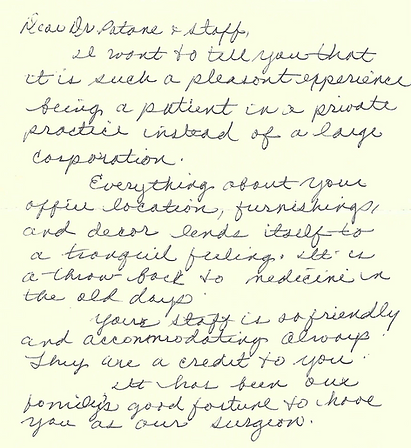 Dear Dr. Patane & staff,
I want to tell you that
it is such a pleasant experience
being a patient in a private
practice instead of a large
corporation.
Everything about your
office location, furnishings,
and decor lends itself to
a tranquil feeling. It is
a throw back to medicine in
the old days.
Your staff is so friendly
and accommodating always.
They are a credit to you.
It has been our
family's good fortune to have
you as our surgeon.